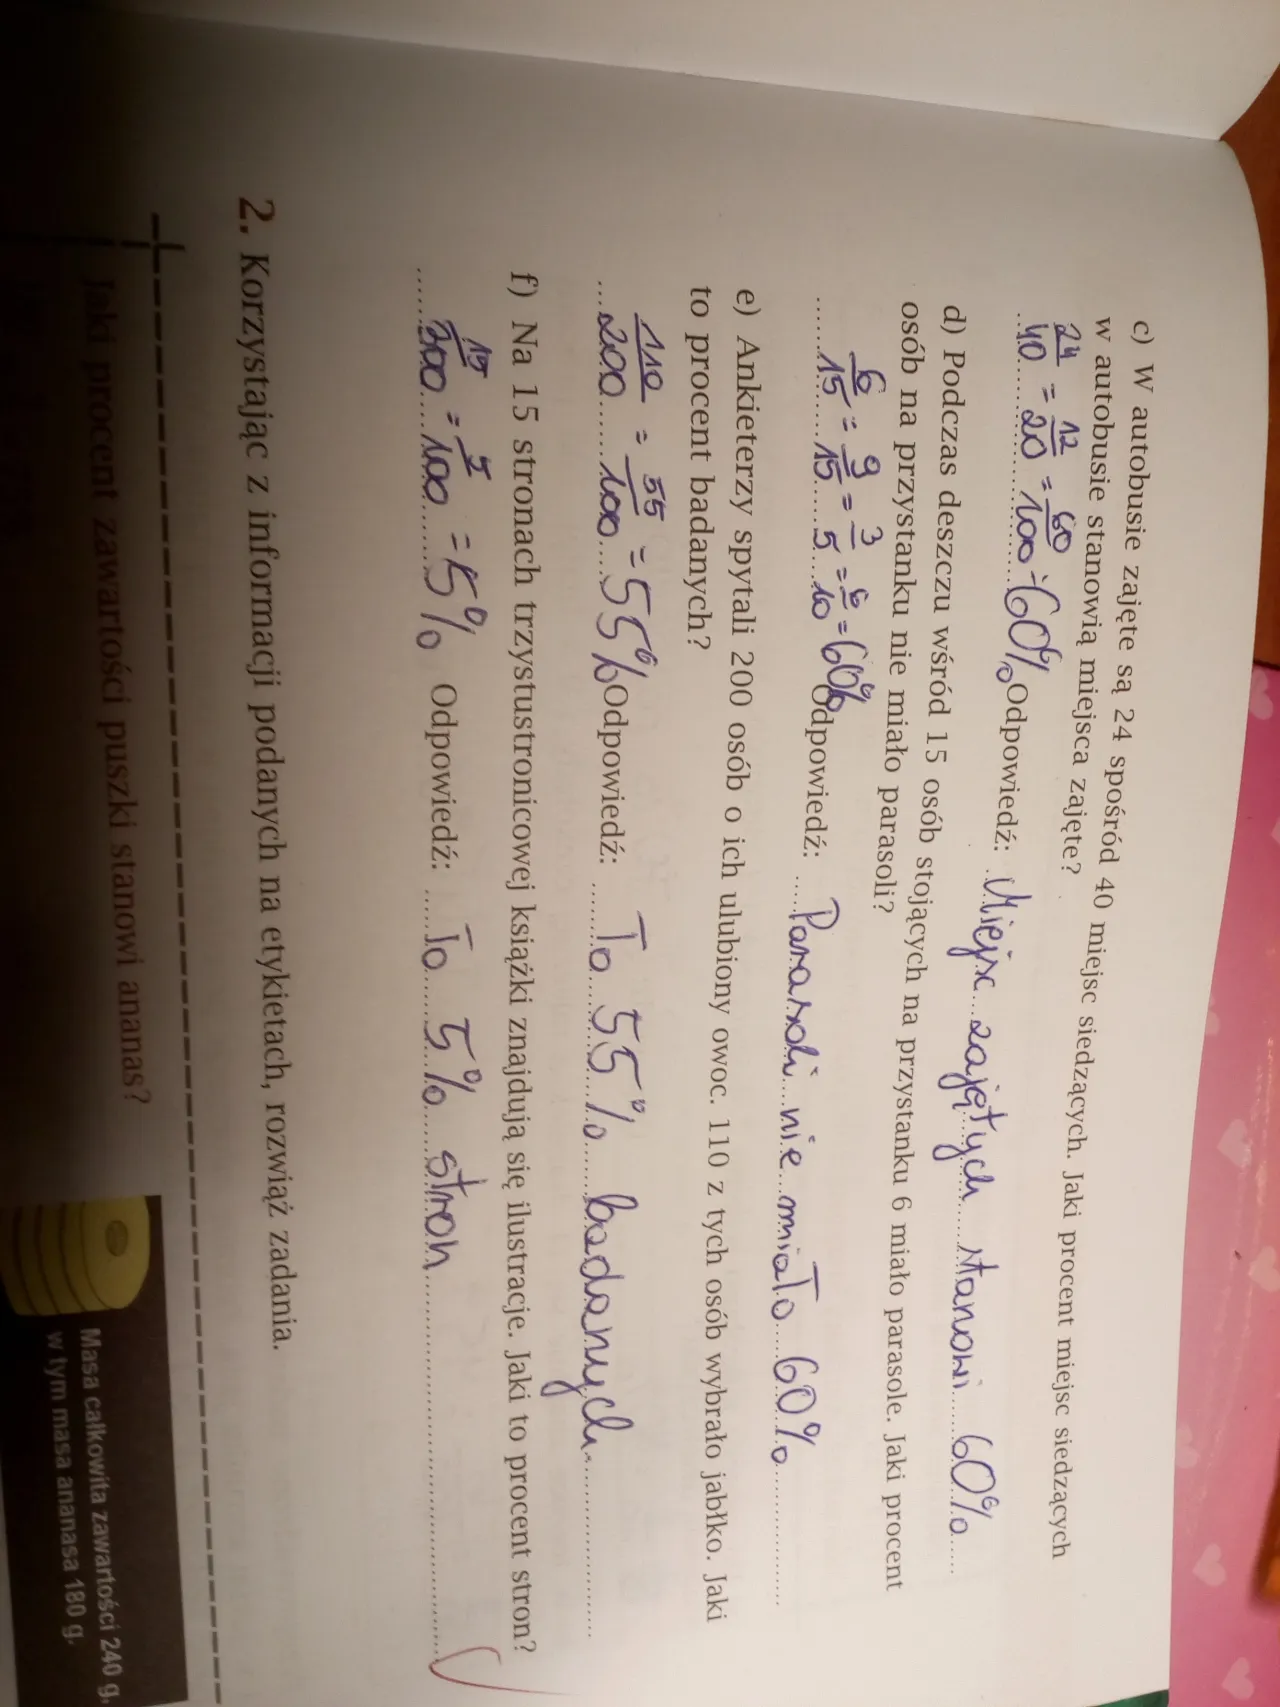 c) W autobusie zajęte są 24 spośród 40 miejsc siedzących. Jaki procent miejsc siedzących
w autobusie stanowią miejsca zajęte?
24/40 = 12/20 = 60/100 = 60% Odpowiedź: Miejsc zajętych stanowi 60%
d) Podczas deszczu wśród 15 osób stojących na przystanku 6 miało parasole. Jaki procent
osób na przystanku nie miało parasoli?
6/15 = 9/15 = 3/5 = 6/10 = 60% Odpowiedź: Parasoli nie miało 60%
e) Ankieterzy spytali 200 osób o ich ulubiony owoc. 110 z tych osób wybrało jabłko. Jaki
to procent badanych?
110/200 = 55/100 = 55% Odpowiedź: To 55% badanych.
f) Na 15 stronach trzystustronicowej książki znajdują się ilustracje. Jaki to procent stron?
15/300 = 5/100 = 5% Odpowiedź: To 5% stron
2. Korzystając z informacji podanych na etykietach, rozwiąż zadania.
Jaki procent zawartości puszki stanowi ananas?
Masa całkowita zawartości 240 g,
w tym masa ananasa 180 g.